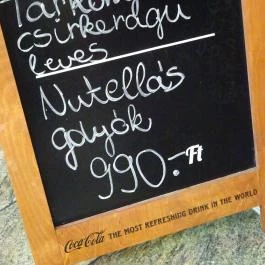 csirkeragu
leves
Nutellás
golyók
990.- Ft
Coca-Cola THE MOST REFRESHING DRINK IN THE WORLD